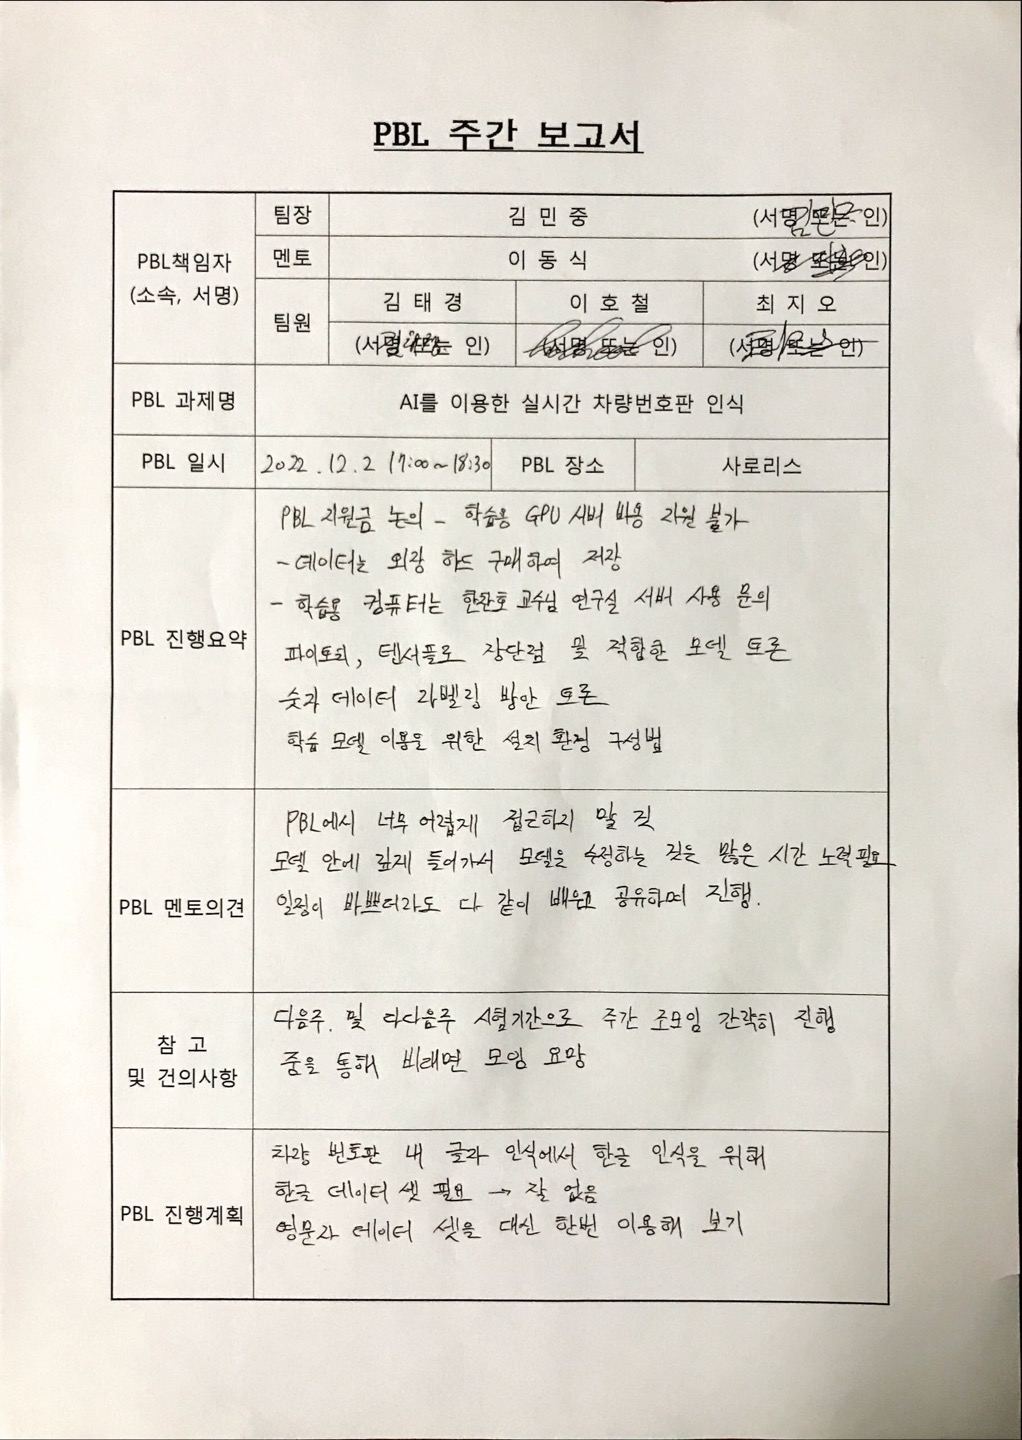 PBL 주간 보고서
PBL책임자
(소속, 서명)
팀장
김 민 중
(서명 또는 인)
멘토
이 동 식
(서명 또는 인)
팀원
김 태 경
이 호 철
최 지 오
(서명 또는 인)
(서명 또는 인)
(서명 또는 인)
PBL 과제명
AI를 이용한 실시간 차량번호판 인식
PBL 일시
2022.12.2 17:00~18:30
PBL 장소
사로리스
PBL 진행요약
PBL 지원금 논의 - 학습용 GPU 서버 비용 지원 불가
- 데이터는 외장 하드 구매하여 저장
- 학습용 컴퓨터는 한완호 교수님 연구실 서버 사용 문의
파이토치, 텐서플로 장단점 및 적합한 모델 토론
숫자 데이터 라벨링 방안 토론
학습 모델 이용을 위한 설치 환경 구성법
PBL 멘토의견
PBL에서 너무 어렵게 접근하지 말 것
모델 안에 깊게 들어가서 모델을 수정하는 것은 많은 시간 노력 필요
일정이 바쁘더라도 다 같이 배우고 공유하며 진행.
참 고
및 건의사항
다음주. 및 다다음주 시험기간으로 주간 조모임 간략히 진행
줌을 통해 비대면 모임 요망
PBL 진행계획
차량 번호판 내 글자 인식에서 한글 인식을 위해
한글 데이터 셋 필요 → 잘 없음
영문자 데이터 셋을 대신 한번 이용해 보기